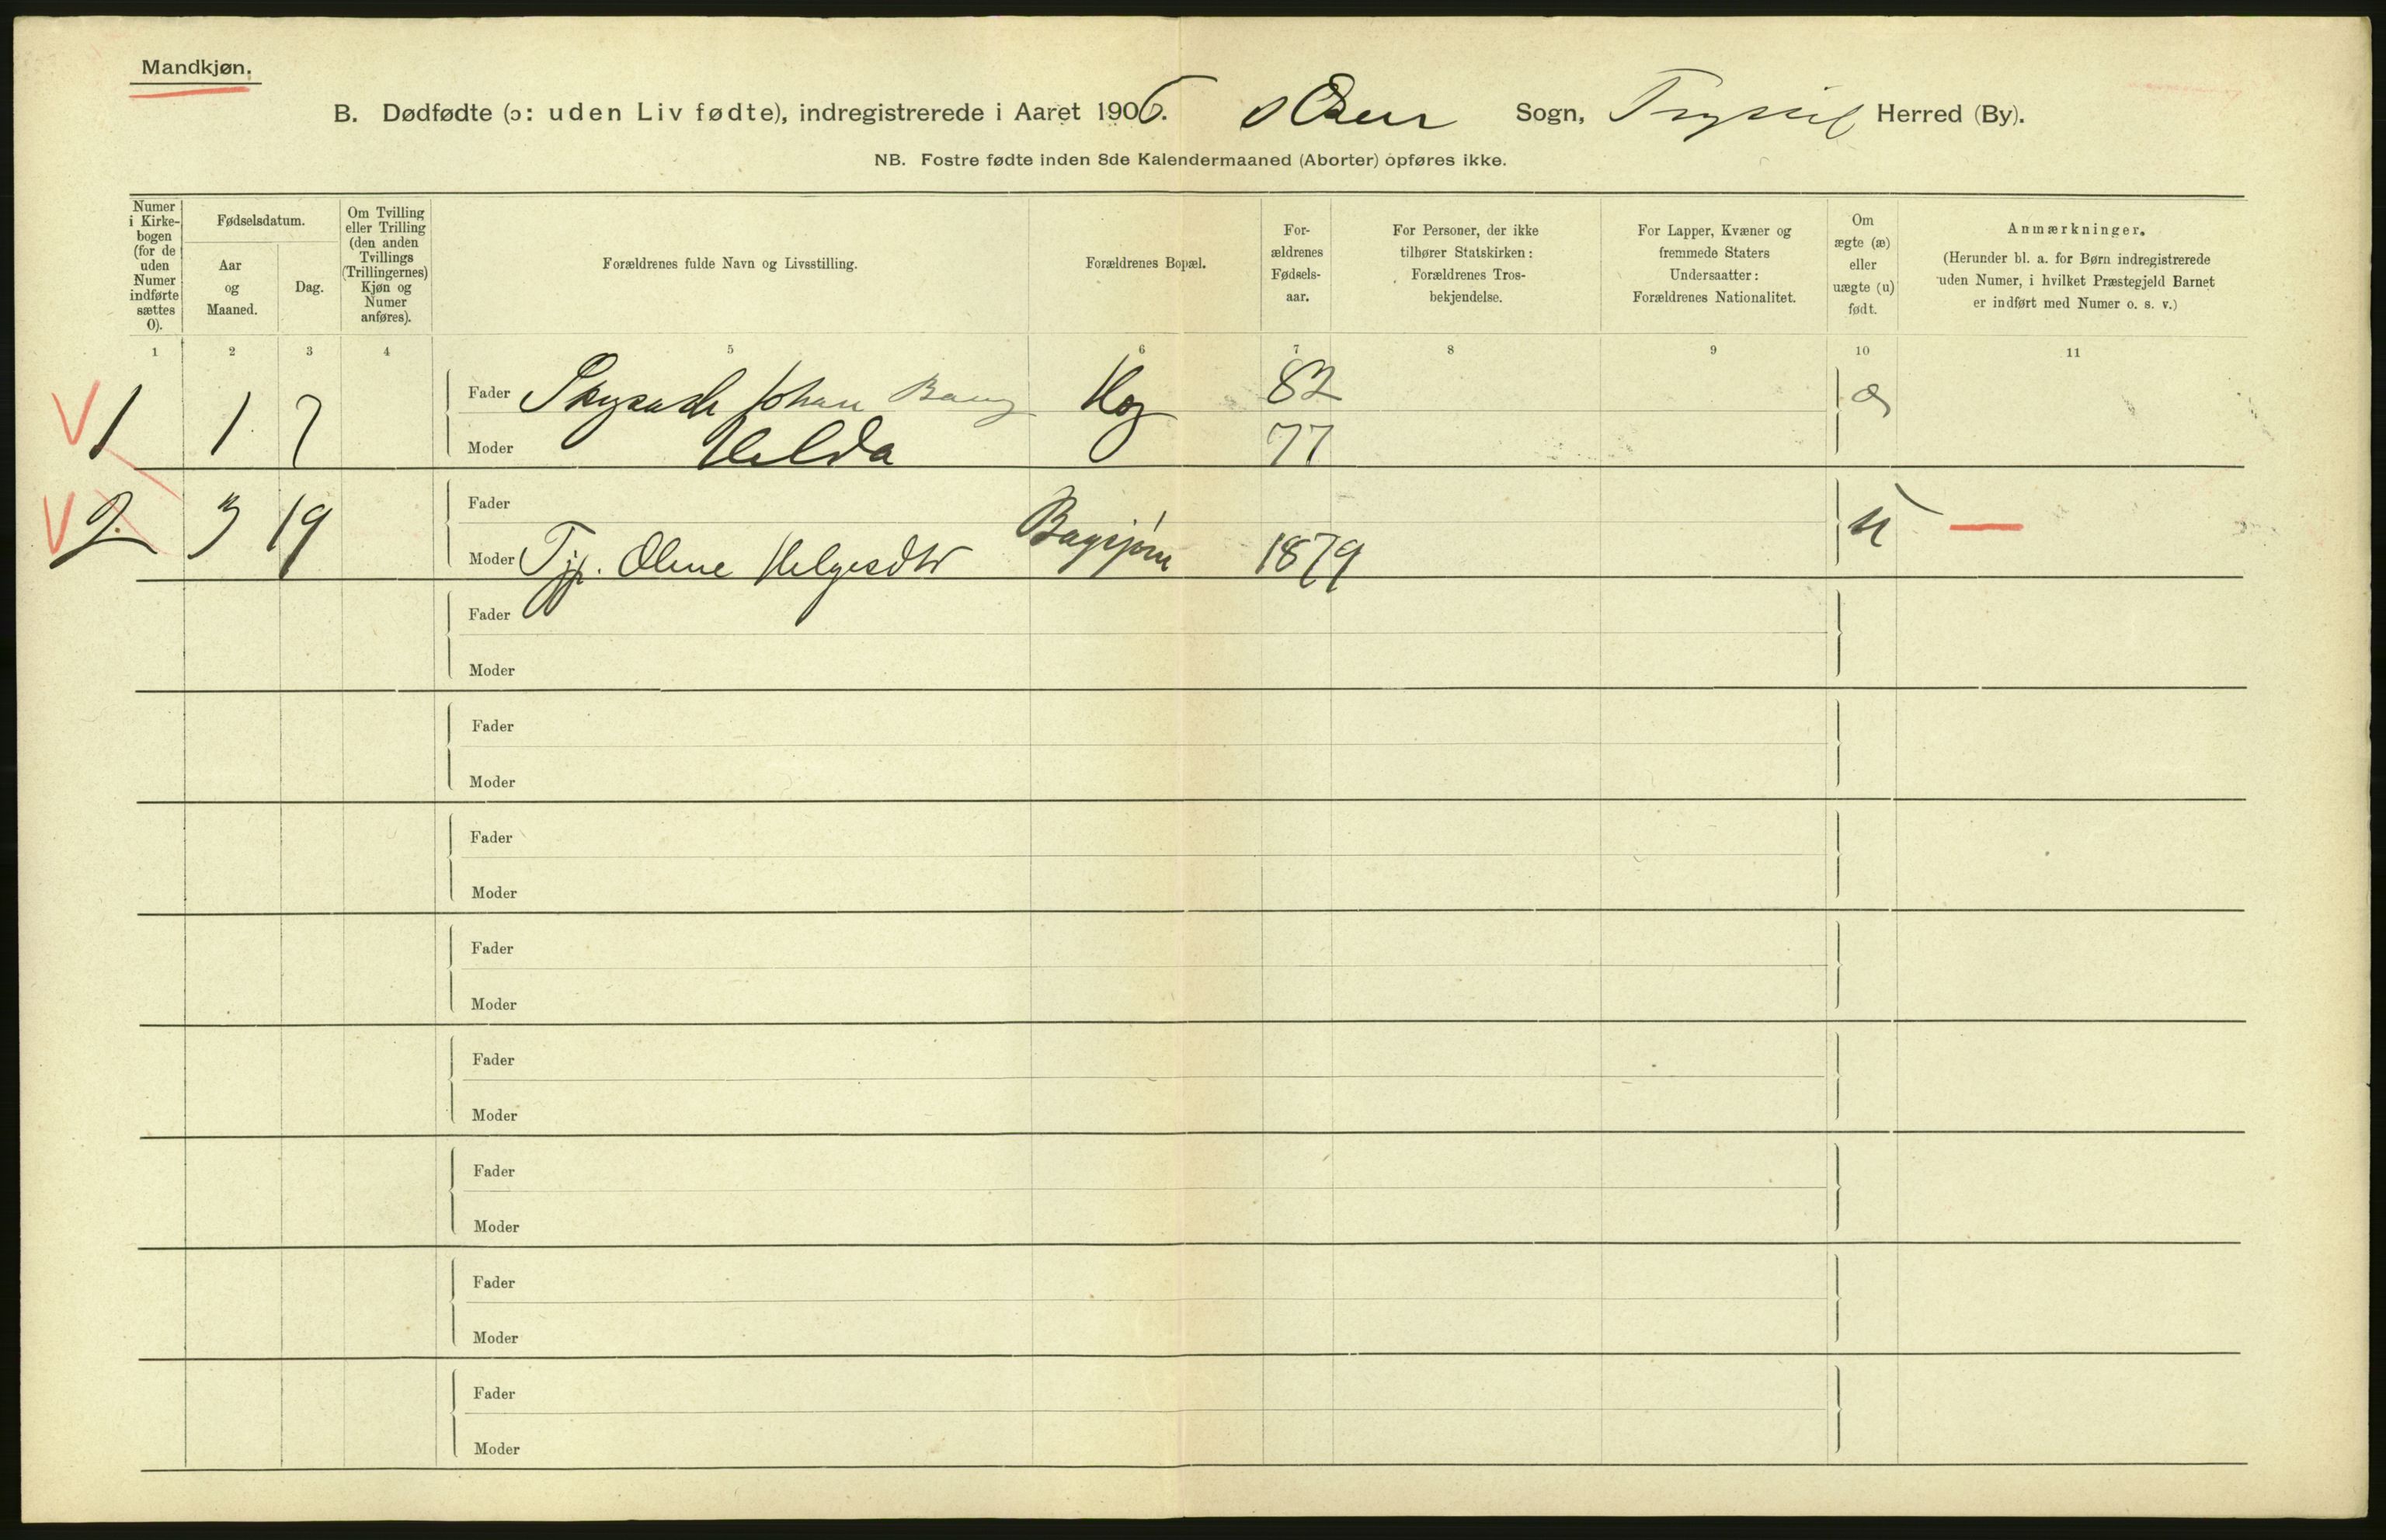 Mandkjøn.
B. Dødfødte (ɔ: uden Liv fødte), indregistrerede i Aaret 1906. Osen Sogn, Trysil Herred (By).
NB. Fostre fødte inden 8de Kalendermaaned (Aborter) opføres ikke.
Numer i Kirke-
bogen
(for de
uden
Numer
indførte
sættes
0).
Fødselsdatum.
Aar
og
Maaned.
Dag.
Om Tvilling
eller Trilling
(den anden
Tvillings
(Trillingernes)
Kjøn og
Numer
anføres).
Forældrenes fulde Navn og Livsstilling.
Forældrenes Bopæl.
For-
ældrenes
Fødsels-
aar.
For Personer, der ikke
tilhører Statskirken:
Forældrenes Tros-
bekjendelse.
For Lapper, Kvæner og
fremmede Staters
Undersaatter:
Forældrenes Nationalitet.
Om
ægte (æ)
eller
uægte (u)
født.
Anmærkninger.
(Herunder bl. a. for Børn indregistrerede
uden Numer, i hvilket Præstegjeld Barnet
er indført med Numer o. s. v.)
1 2 3 4 5 6 7 8 9 10 11
V 1 1 7 Fader Johan Bang 82 æ
Moder Helda 77
V 2. 3 19 Fader
Moder Tjp. Oline Helgesdtr 1879 u —
Fader
Moder
Fader
Moder
Fader
Moder
Fader
Moder
Fader
Moder
Fader
Moder
Fader
Moder
Fader
Moder